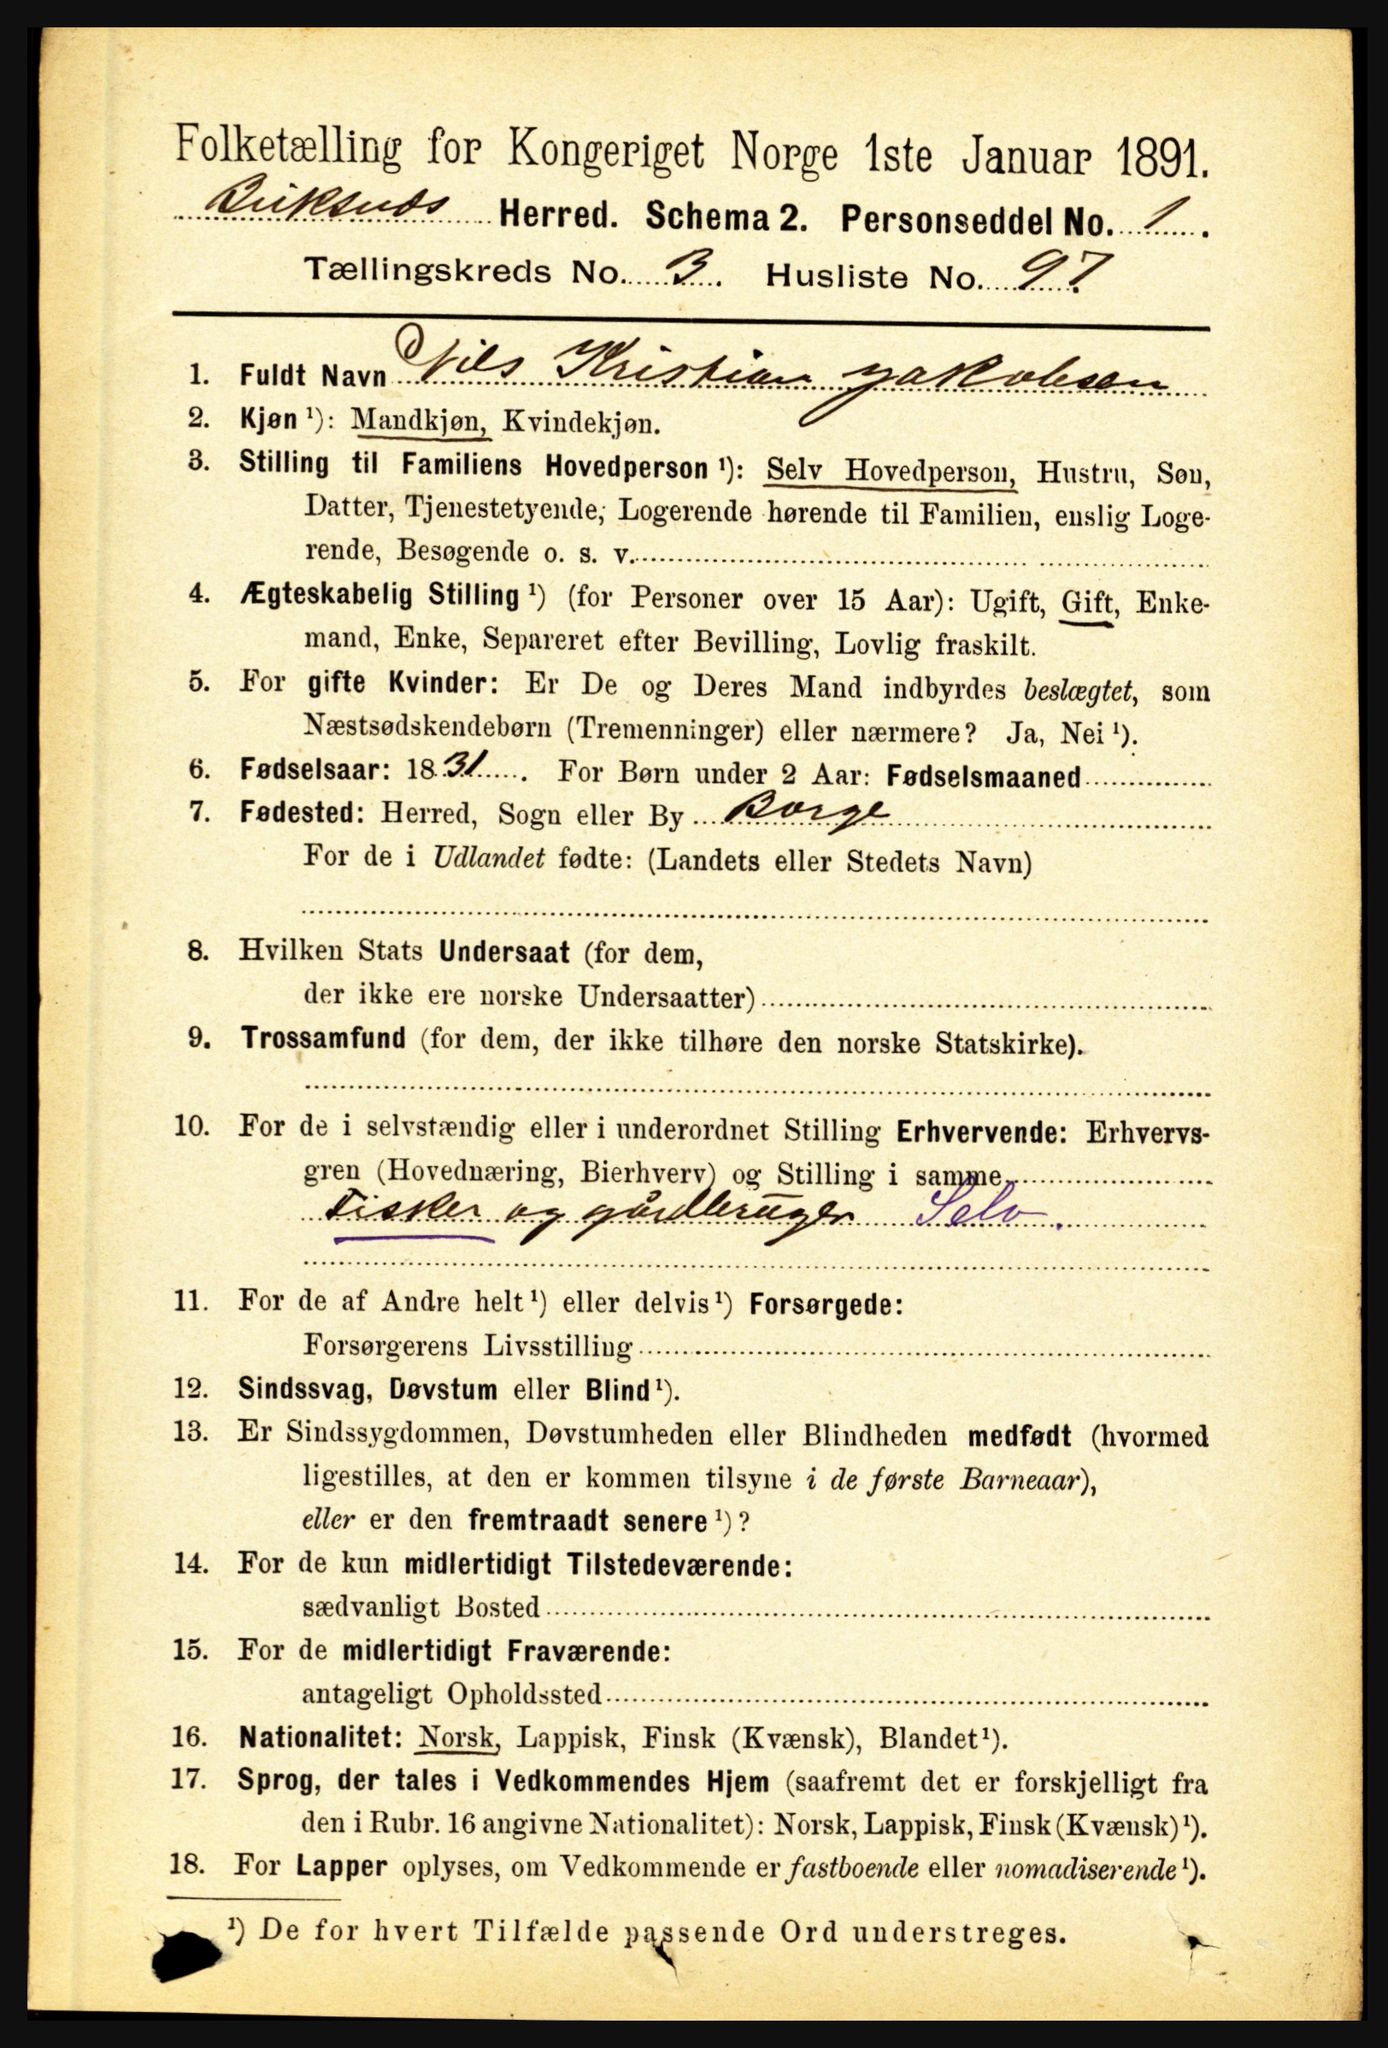 Folketælling for Kongeriget Norge 1ste Januar 1891.
Buksnæs Herred. Schema 2. Personseddel No. 1.
Tællingskreds No. 3. Husliste No. 97.
1. Fuldt Navn Nils Kristian Jakobsen
2. Kjøn ¹): Mandkjøn, Kvindekjøn.
3. Stilling til Familiens Hovedperson ¹): Selv Hovedperson, Hustru, Søn,
Datter, Tjenestetyende, Logerende hørende til Familien, enslig Loge-
rende, Besøgende o. s. v.
4. Ægteskabelig Stilling ¹) (for Personer over 15 Aar): Ugift, Gift, Enke-
mand, Enke, Separeret efter Bevilling, Lovlig fraskilt.
5. For gifte Kvinder: Er De og Deres Mand indbyrdes beslægtet, som
Næstsødskendebørn (Tremenninger) eller nærmere? Ja, Nei ¹).
6. Fødselsaar: 1831. For Børn under 2 Aar: Fødselsmaaned
7. Fødested: Herred, Sogn eller By Borge
For de i Udlandet fødte: (Landets eller Stedets Navn)
8. Hvilken Stats Undersaat (for dem,
der ikke ere norske Undersaatter)
9. Trossamfund (for dem, der ikke tilhøre den norske Statskirke).
10. For de i selvstændig eller i underordnet Stilling Erhvervende: Erhvervs-
gren (Hovednæring, Bierhverv) og Stilling i samme
Fisker og gårdbruger Selv.
11. For de af Andre helt ¹) eller delvis ¹) Forsørgede:
Forsørgerens Livsstilling
12. Sindssvag, Døvstum eller Blind ¹).
13. Er Sindssygdommen, Døvstumheden eller Blindheden medfødt (hvormed
ligestilles, at den er kommen tilsyne i de første Barneaar),
eller er den fremtraadt senere ¹)?
14. For de kun midlertidigt Tilstedeværende:
sædvanligt Bosted
15. For de midlertidigt Fraværende:
antageligt Opholdssted
16. Nationalitet: Norsk, Lappisk, Finsk (Kvænsk), Blandet ¹).
17. Sprog, der tales i Vedkommendes Hjem (saafremt det er forskjelligt fra
den i Rubr. 16 angivne Nationalitet): Norsk, Lappisk, Finsk (Kvænsk) ¹).
18. For Lapper oplyses, om Vedkommende er fastboende eller nomadiserende ¹).
¹) De for hvert Tilfælde passende Ord understreges.